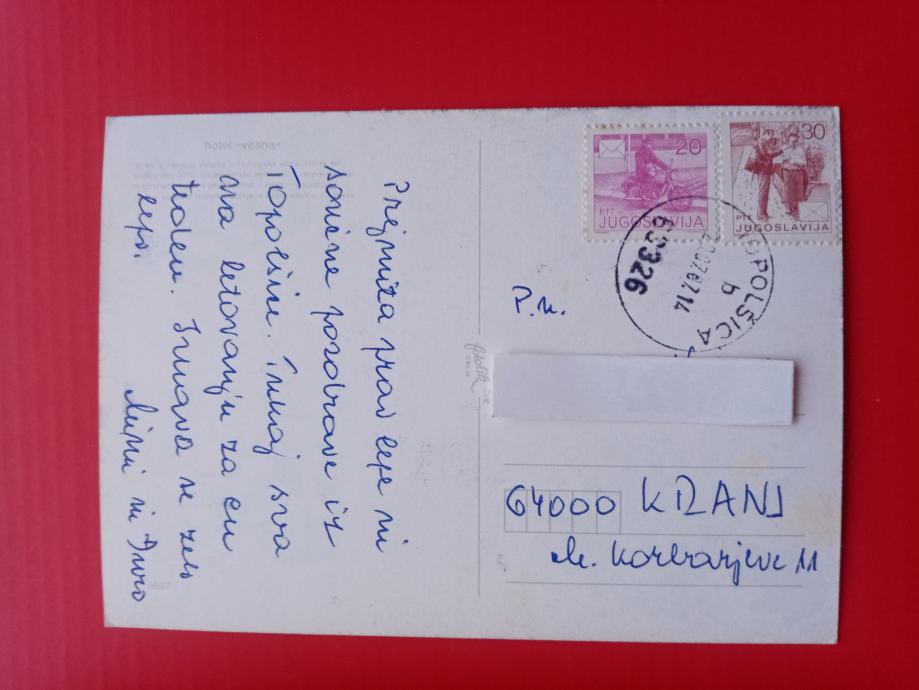 hotel -vesna-
Prejmita prav lepe in
sončne pozdrave iz
Topolšice. Tukaj sva
na letovanju za en
teden. Imava se zelo
lepo.
Mimi in Duro
20
PTT
JUGOSLAVIJA
30
PTT
JUGOSLAVIJA
TOPOLŠICA
b
63326
P.n.
64000 KRANJ
11